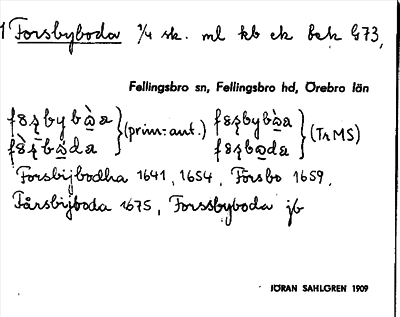 1 Forsbyboda 3/4 sk. ml kb ek bek G73,
Fellingsbro sn, Fellingsbro hd, Örebro län
(prim: ant.) (Tr MS)
Forsbijbodha 1641, 1654, Forsbo 1659,
Fårsbijboda 1675, Forssbyboda jb
JÖRAN SAHLGREN 1909